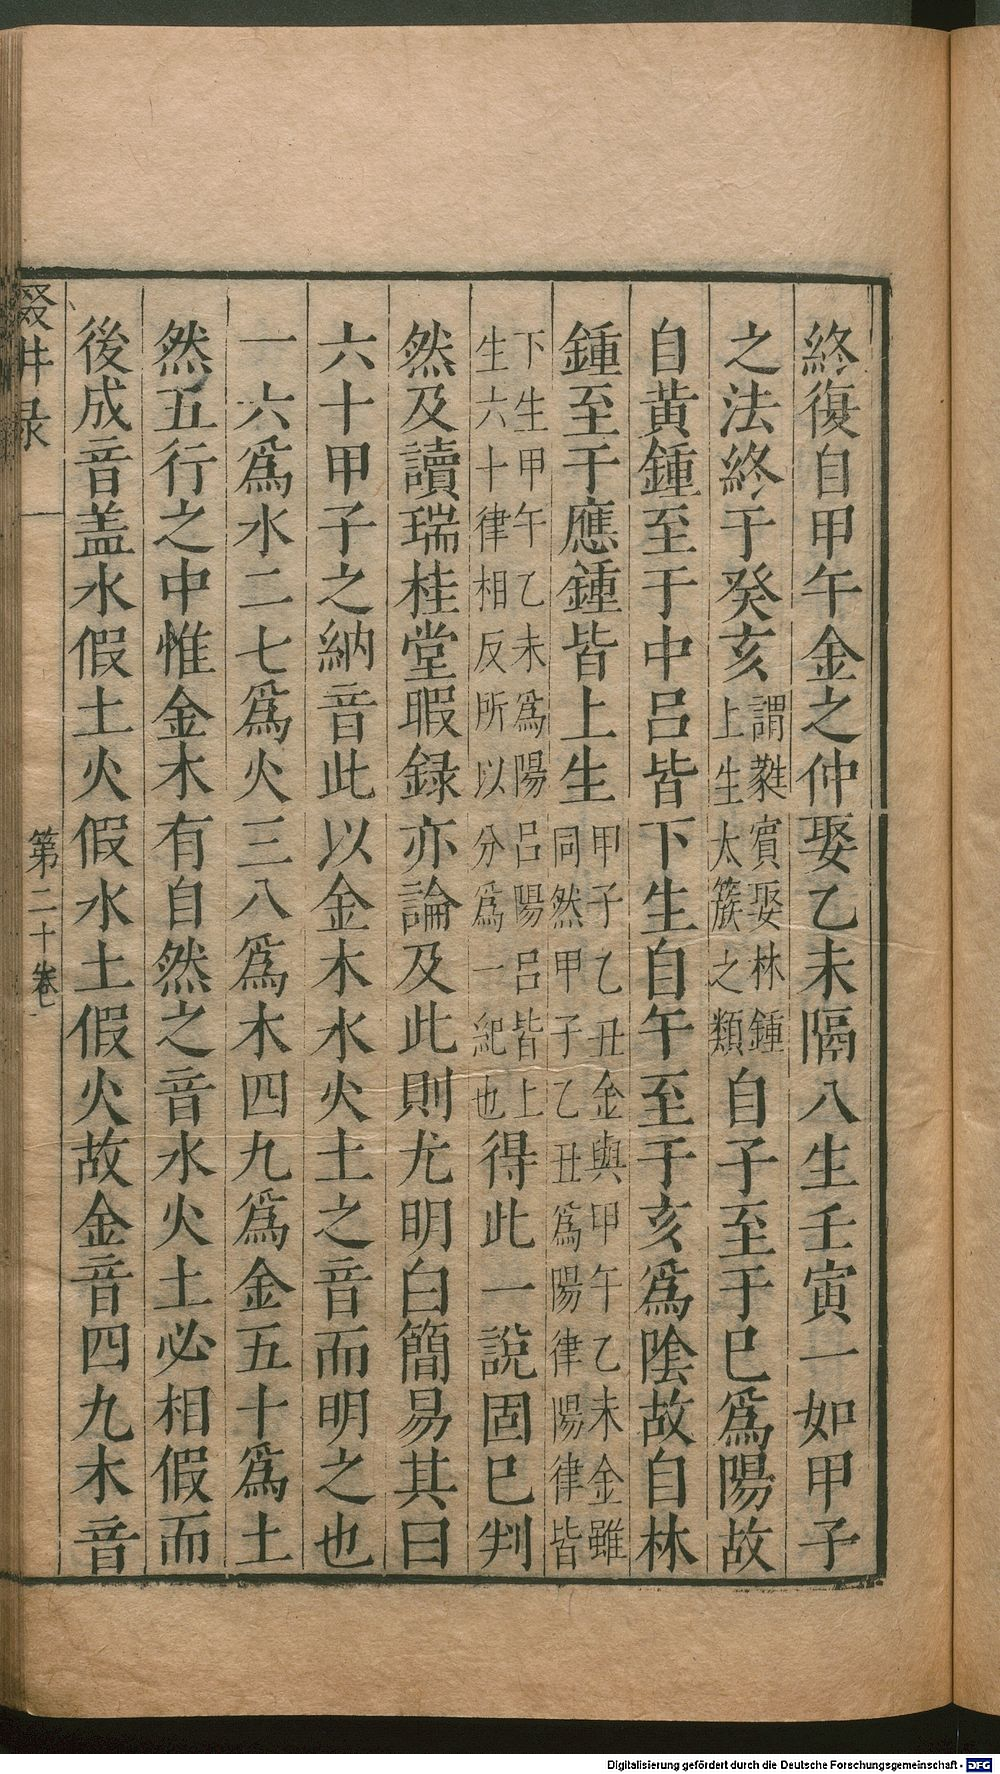 終復自甲午金之仲娶乙未隔八生壬寅一如甲子
之法終于癸亥謂蕤賓娶林鍾上生太簇之類自子至于巳爲陽故
自黄鍾至于中吕皆下生自午至于亥爲陰故自林
鍾至于應鍾皆上生甲子乙丑金與甲午乙未金雖同然甲子乙丑爲陽律陽律皆
下生甲午乙未爲陽吕陽吕皆上生六十律相反所以分爲一紀也得此一說固已判
然及讀瑞桂堂暇録亦論及此則尤明白簡易其曰
六十甲子之納音此以金木水火土之音而明之也
一六爲水二七爲火三八爲木四九爲金五十爲土
然五行之中惟金木有自然之音水火土必相假而
後成音盖水假土火假水土假火故金音四九木音
輟畊录
第二十卷
Digitalisierung gefördert durch die Deutsche Forschungsgemeinschaft - DFG